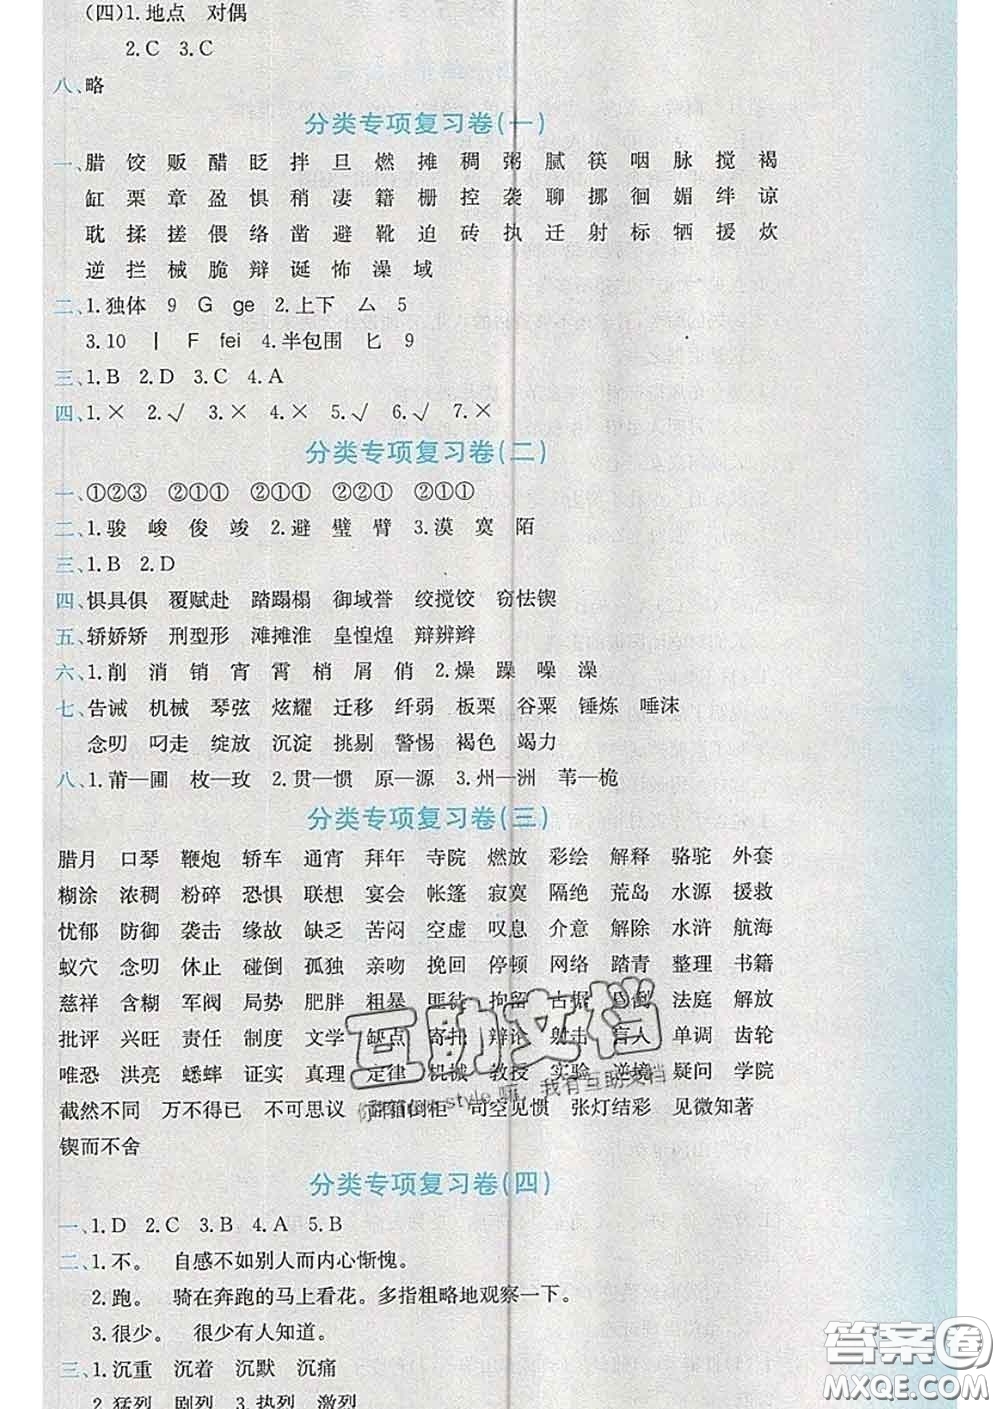 (四)1.地点 对偶
2.C 3.C
八、略
分类专项复习卷(一)
一、腊 饺 贩 醋 眨 拌 旦 燃 摊 稠 粥 腻 筷 咽 脉 搅 褐
缸 栗 章 盈 惧 稍 凄 籍 栅 控 袭 聊 挪 徊 媚 绊 谅
耽 揉 搓 偎 络 凿 避 靴 迫 砖 执 迁 射 标 牺 援 炊
逆 拦 械 脆 辩 诞 怖 澡 域
二、1.独体 9 G ge 2.上下 厶 5
3.10 丨 F fei 4.半包围 匕 9
三、1.B 2.D 3.C 4.A
四、1.× 2.√ 3.× 4.× 5.√ 6.√ 7.×
分类专项复习卷(二)
一、①②③ ②①① ②①① ②②① ②①①
二、1.骏 峻 俊 竣 2.避 璧 臂 3.漠 寞 陌
三、1.B 2.D
四、惧具俱 覆赋赴 踏蹋榻 御域誉 绞搅饺 窃怯锲
五、轿娇矫 刑型形 滩摊淮 皇惶煌 辩辨辫
六、1.削 消 销 宵 霄 梢 屑 俏 2.燥 躁 噪 澡
七、告诫 机械 琴弦 炫耀 迁移 纤弱 板栗 谷粟 锤炼 唾沫
念叨 叼走 绽放 沉淀 挑剔 警惕 褐色 竭力
八、1.莆—圃 枚—玫 2.贯—惯 原—源 3.州—洲 苇—桅
分类专项复习卷(三)
腊月 口琴 鞭炮 轿车 通宵 拜年 寺院 燃放 彩绘 解释 骆驼 外套
糊涂 浓稠 粉碎 恐惧 联想 宴会 帐篷 寂寞 隔绝 荒岛 水源 援救
忧郁 防御 袭击 缘故 缺乏 苦闷 空虚 叹息 介意 解除 水浒 航海
蚁穴 念叨 休止 碰倒 孤独 亲吻 挽回 停顿 网络 踏青 整理 书籍
慈祥 含糊 军阀 局势 肥胖 粗暴 匪徒 拘留 古榕 法庭 解放
批评 兴旺 责任 制度 文学 缺点 寄托 辩论 射击 盲人 单调 齿轮
唯恐 洪亮 蟋蟀 证实 真理 定律 机械 教授 实验 逆境 疑问 学院
截然不同 万不得已 不可思议 翻箱倒柜 司空见惯 张灯结彩 见微知著
锲而不舍
互助文档
style 嘛，我有互助文档
分类专项复习卷(四)
一、1.D 2.C 3.B 4.A 5.B
二、1.不。 自感不如别人而内心惭愧。
2.跑。 骑在奔跑的马上看花。多指粗略地观察一下。
3.很少。 很少有人知道。
三、1.沉重 沉着 沉默 沉痛
2.猛烈 剧烈 3.热烈 激烈
答案圈
MXQE.COM